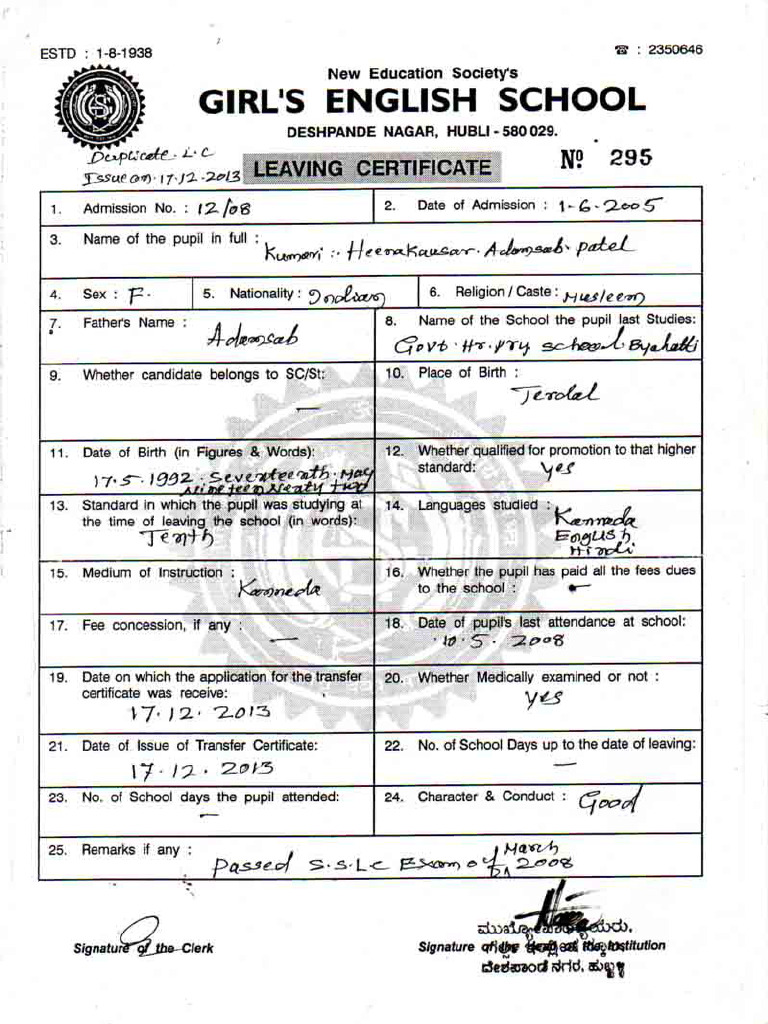 ESTD : 1-8-1938
☎ : 2350646
New Education Society's
GIRL'S ENGLISH SCHOOL
DESHPANDE NAGAR, HUBLI - 580 029.
Duplicate L.C
Issue on. 17.12.2013
LEAVING CERTIFICATE
Nº 295
1. Admission No. : 12/08
2. Date of Admission : 1-6-2005
3. Name of the pupil in full :
Kumari :- Heenakausar. Adamsab. patel
4. Sex : F.
5. Nationality : Indian
6. Religion / Caste : Musleem
7. Father's Name :
Adamsab
8. Name of the School the pupil last Studies:
Govt. Hr. pry school. Byahatti
9. Whether candidate belongs to SC/St:
—
10. Place of Birth :
Terdal
11. Date of Birth (in Figures & Words):
17.5.1992. Seventeenth. May
Nineteen Neaty two
12. Whether qualified for promotion to that higher
standard: Yes
13. Standard in which the pupil was studying at
the time of leaving the school (in words):
Tenth
14. Languages studied : Kannada
English
Hindi
15. Medium of Instruction :
Kannada
16. Whether the pupil has paid all the fees dues
to the school : —
17. Fee concession, if any :
—
18. Date of pupil's last attendance at school:
10.5.2008
19. Date on which the application for the transfer
certificate was receive:
17.12.2013
20. Whether Medically examined or not :
Yes
21. Date of Issue of Transfer Certificate:
17.12.2013
22. No. of School Days up to the date of leaving:
—
23. No. of School days the pupil attended:
—
24. Character & Conduct : Good
25. Remarks if any :
Passed S.S.LC Exam of March 2008
Signature of the Clerk
ಮುಖ್ಯೋಪಾಧ್ಯಾಯರು,
Signature of the
Institution
ದೇಶಪಾಂಡೆ ನಗರ, ಹುಬ್ಬಳ್ಳಿ